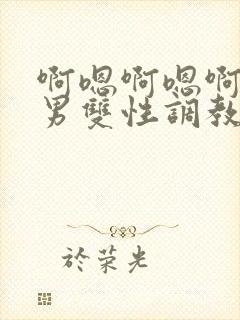 啊嗯啊嗯啊
男雙性調教
於荣光